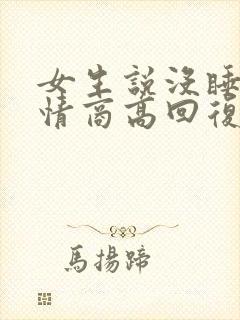 女生說沒睡
情商高回復
馬揚蹄